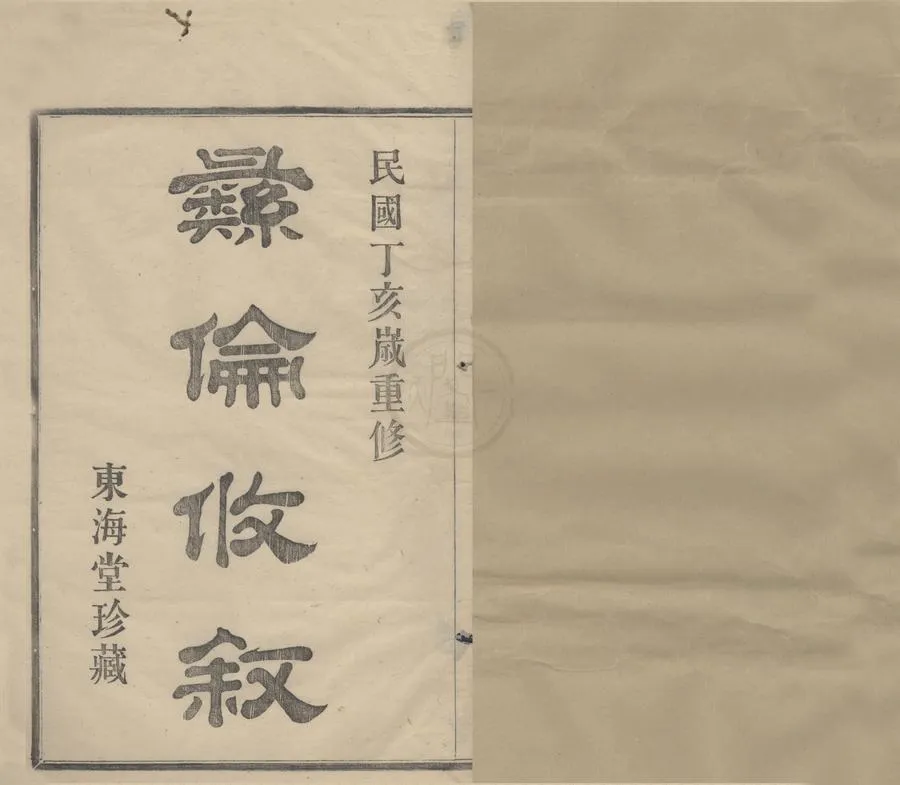 民國丁亥嵗重修
彞倫攸敘
東海堂珍藏